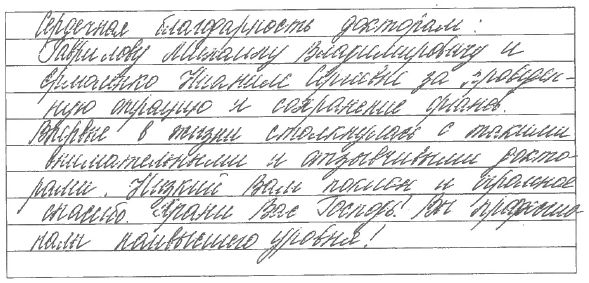 Сердечная благодарность докторам:
Гаврилову Михаилу Владимировичу и
Ермаченко Сергеевне за проведен-
ную операцию и сохранение органов.
Впервые в жизни столкнулась с такими
внимательными и отзывчивыми докто-
рами. Низкий Вам поклон и огромное
спасибо. Храни Вас Господь! Вы професио-
налы наивысшего уровня!